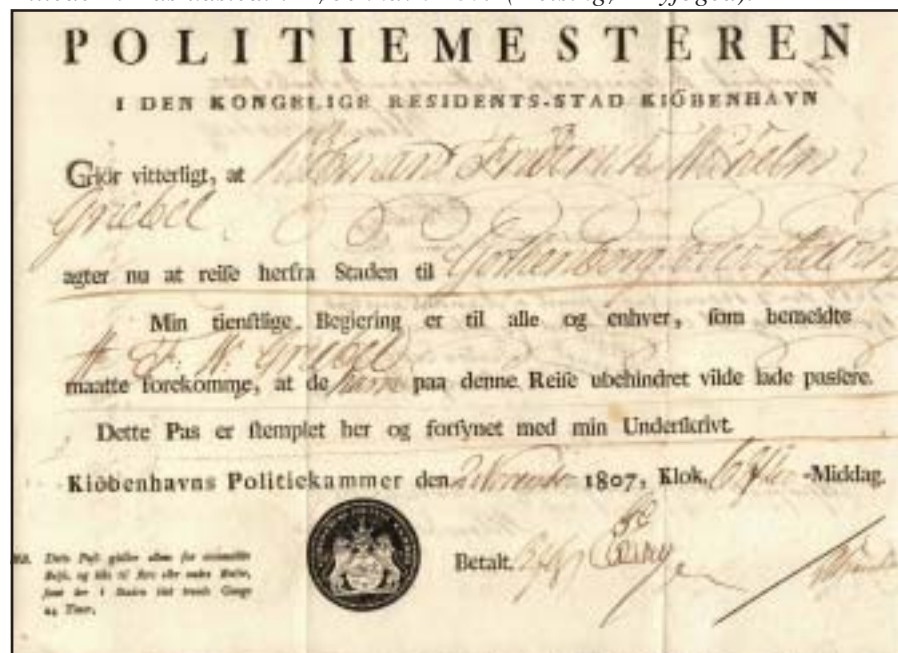 POLITIEMESTEREN
I DEN KONGELIGE RESIDENTS-STAD KIÖBENHAVN
Giör vitterligt, at Friderich Wilhelm
Griebel
agter nu at reise herfra Staden til Gothenborg over
Min tienstlige Begiering er til alle og enhver, som bemeldte
H F. W. Griebel
maatte forekomme, at de ham paa denne Reise ubehindret vilde lade passere.
Dette Pas er stemplet her og forsynet med min Underskrivt.
Kiöbenhavns Politiekammer den 2 November 1807, Klok. 6 Efter-Middag.
Betalt.
NB. Dette Pas gielder allene for
Reise, og ikke til flere eller andre Reiser,
24 Timer.